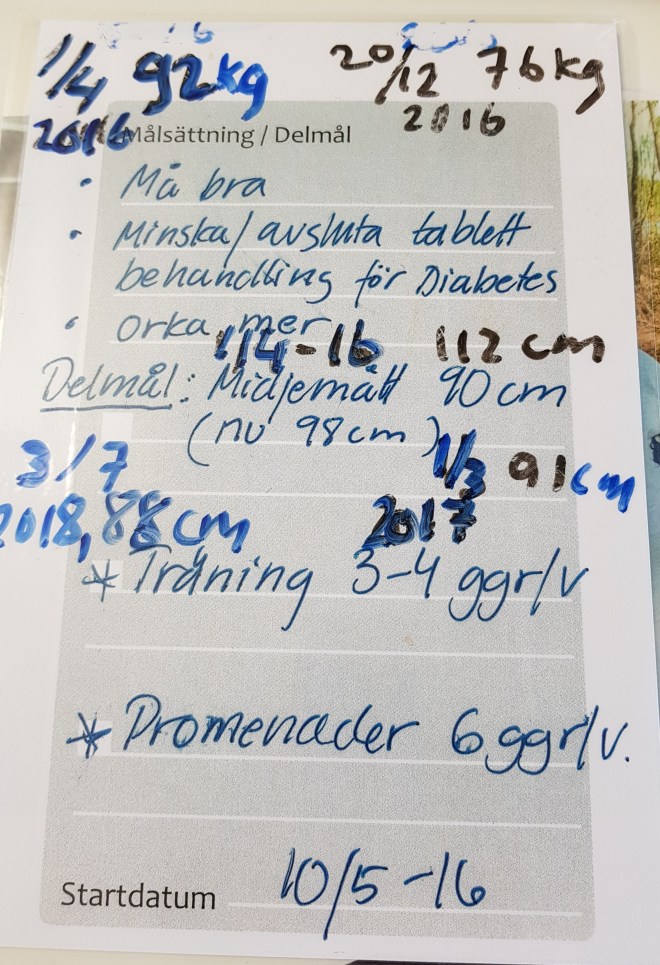 1/4 92kg 20/12 76kg
2016 2016
Målsättning / Delmål
• Må bra
• Minska/avsluta tablett
behandling för Diabetes
• orka mer
1/4-16 112 cm
Delmål: Midjemått 90 cm
(nu 98cm)
3/7 1/3 91cm
2018, 88cm 2017
* Träning 3-4 ggr/v
* Promenader 6 ggr/v.
Startdatum 10/5 -16